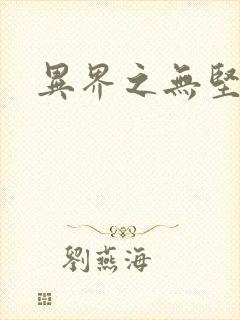 異界之無堅
劉燕海